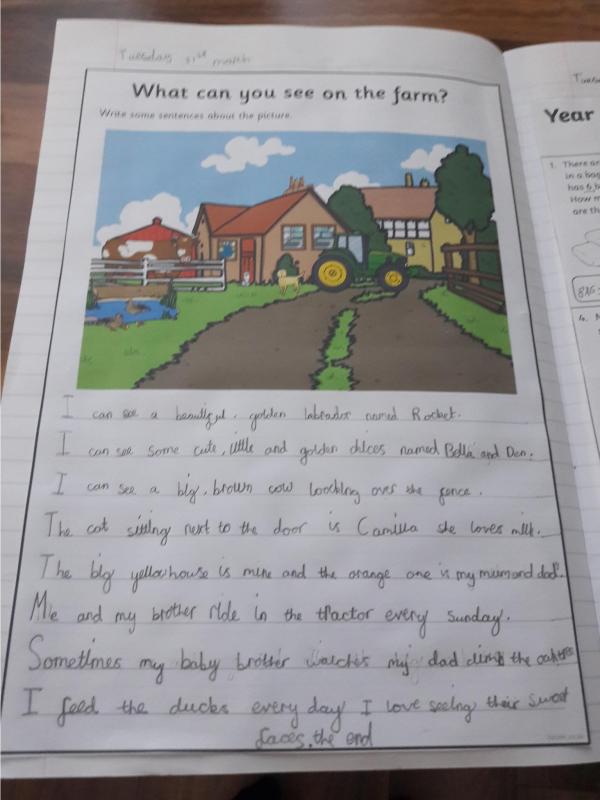 Tuesday 31st march
What can you see on the farm?
Write some sentences about the picture.
I can see a beautiful, golden labrador named Rocket.
I can see some cute, little and golden dulces named Bella and Den.
I can see a big, brown cow loocking over the fence.
The cat sitting next to the door is Camilla she loves milk.
The big yellow house is mine and the orange one is my mum and dad's.
Me and my brother ride in the tractor every sunday.
Sometimes my baby brother watches my dad climb the oak tree
I feed the ducks every day I love seeing their sweet
faces. the end
Year
1. There are
in a bag
has 6 b
How m
are th
4.